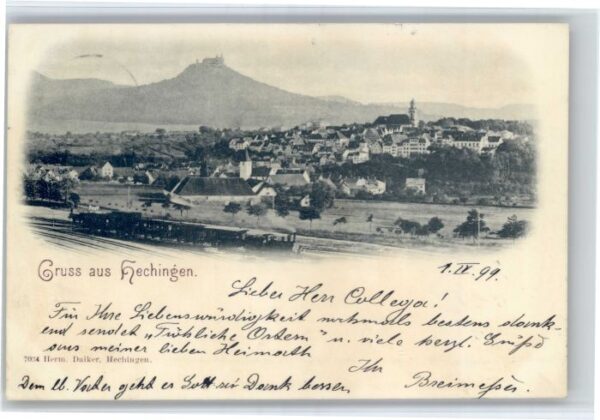 Gruss aus Hechingen.
1. IV. 99.
Lieber Herr Collega!
Für Ihre Liebenswürdigkeit nochmals bestens dank-
end sendet „Fröhliche Ostern" u. viele herzl. Grüße
aus meiner lieben Heimath
7034 Herm. Daiker, Hechingen.
Ihr
Dem lb. Vater geht es Gott sei Dank besser.